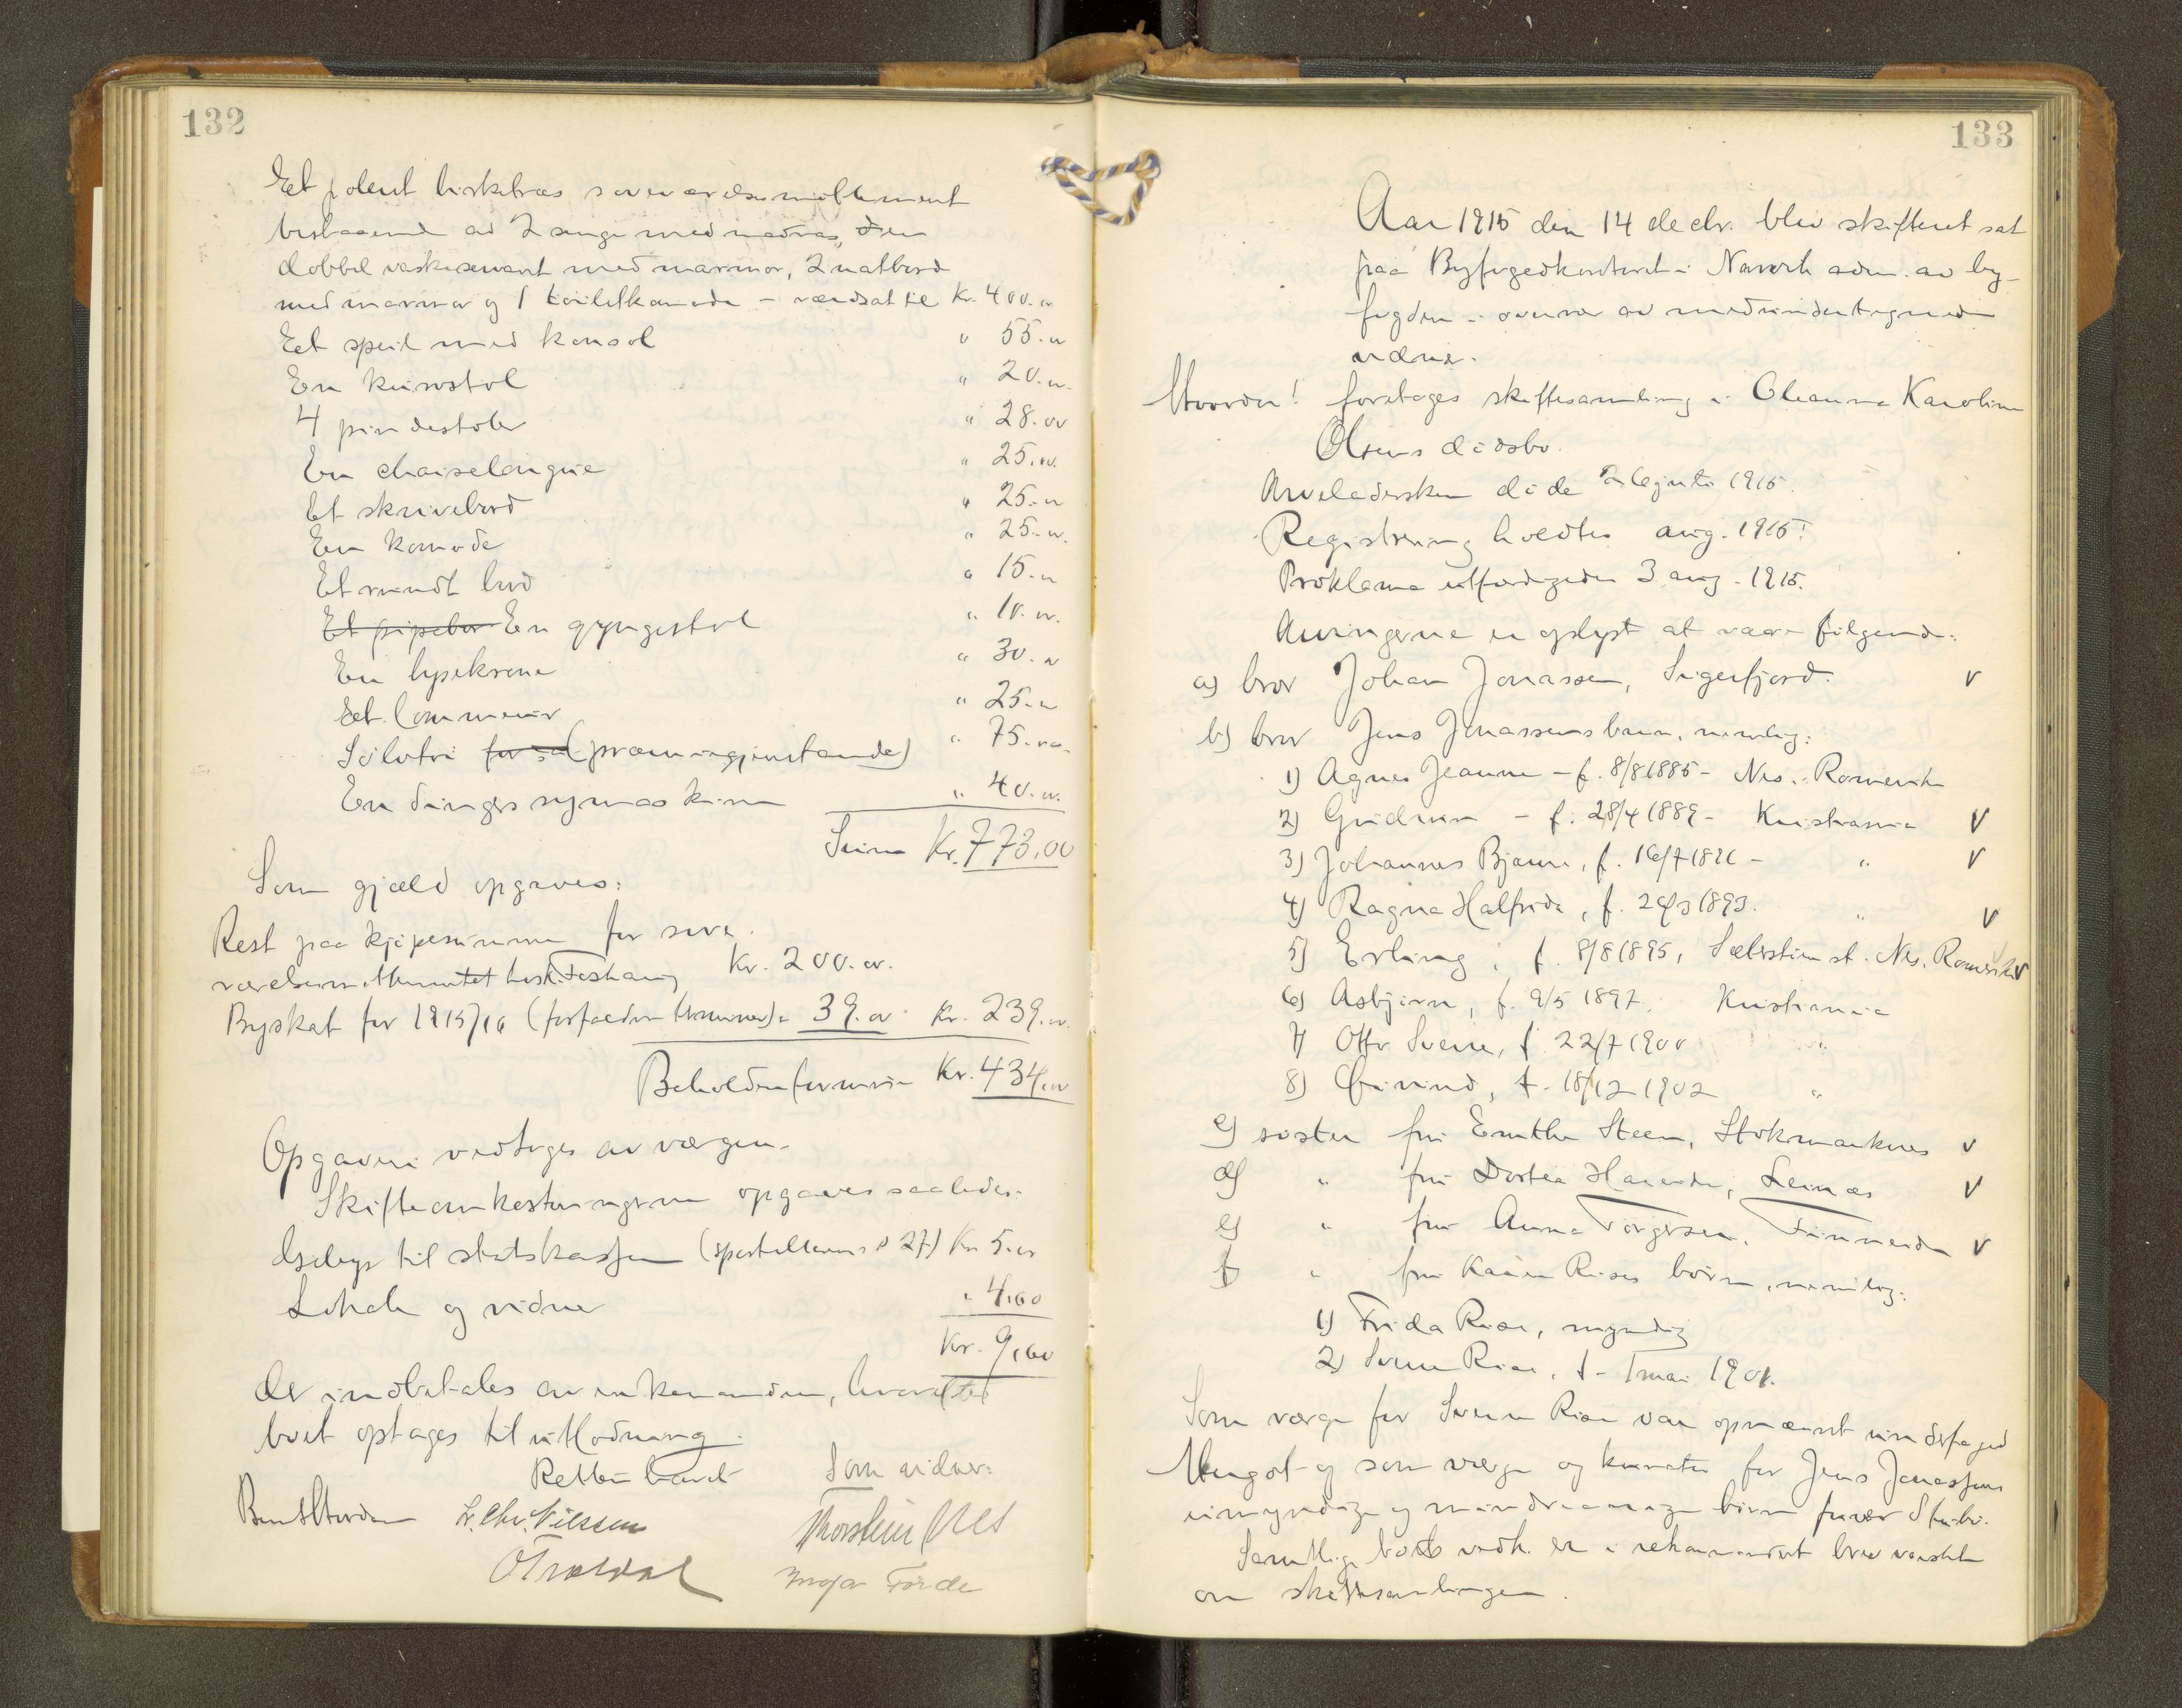 132
Et polert birketræs soveværelsesmøblement
bestaaende av 2 senge med madras, en
dobbel vaskeservant med marmor, 2 natbord
med marmor og 1 toiletkomode - værdsat til Kr. 400.00
Et speil med konsol " 55.00
En kurvstol " 20.00
4 pindestoler " 28.00
En chaiselongue " 25.00
Et skrivebord " 25.00
En komode " 25.00
Et rundt bord " 15.00
Et pipebor En gyngestol " 10.00
En lysekrone " 30.00
Et lommeur " 25.00
Sølvtøi (præmiegjenstande) " 75.00
En Singers symaskine " 40.00
Sum Kr. 773.00
Som gjæld opgaves:
Rest paa kjøpesummen for sove-
værelsesmøblementet Kr. 200.00
Byskat for 1915/16 (forfaldne terminer) " 39.00 Kr. 239.00
Beholden formue Kr. 434.00
Opgaven vedtoges av værgen.
Skifteomkostningerne opgaves saaledes:
Gebyr til statskassen (sportelloven § 27) Kr. 5.00
Lokale og vidner " 4.60
Kr. 9,60
der indbetales av enkemanden, hvorefter
boet optages til utlodning.
Retten hævet Som vidner:
L. Chr. Nilssen Thorstein Nes
O Trældal Inga Førde
133
Aar 1915 den 14 decbr. blev skifteret sat
paa Byfogedkontoret i Narvik adm. av by-
fogden i overvær av medundertegnede
vidner.
Hvorda! foretoges skiftesamling i Oleanna Karoline
Olsens dødsbo.
Arveladersken døde juli 1915.
Registrering holdtes aug. 1915.
Proklama utfærdigedes 3 aug. 1915.
Arvingerne er oplyst at være følgende:
a) bror Johan Jonassen, Sigerfjord. v
b) bror Jens Jonassens barn, nemlig:
1) Agnes Jeanne - f. 8/8 1885 - Nes. Romerike
2) Gudrun - f. 28/4 1889 - Kristiania v
3) Johannes Bjarne, f. 16/7 - " v
4) Ragna Halfrida, f. 1893. " v
5) Erling, f. 8/8 1895, st. Nes. Romerike v
6) Asbjørn, f. 9/5 1897. Kristiania
7) Otto Sverre, f. 22/7 1900 "
8) Øivind, f. 18/12 1902 "
c) søster fru Steen, Stokmarknes v
d) " fru Dortea Leines v
e) " fru Anna Torgersen, Finneidn v
f) " fru Karen Rises børn, nemlig:
1) Frida Rise, myndig
2) Sverre Rise, f. 1 mai 1901.
Som værge for Sverre Rise var opnævnt underfoged
og som værge og kurator for Jens Jonassens
umyndige og mindreaarige børn
Samtlige vedk. er i rekommandert brev varslet
om skiftesamlingen.